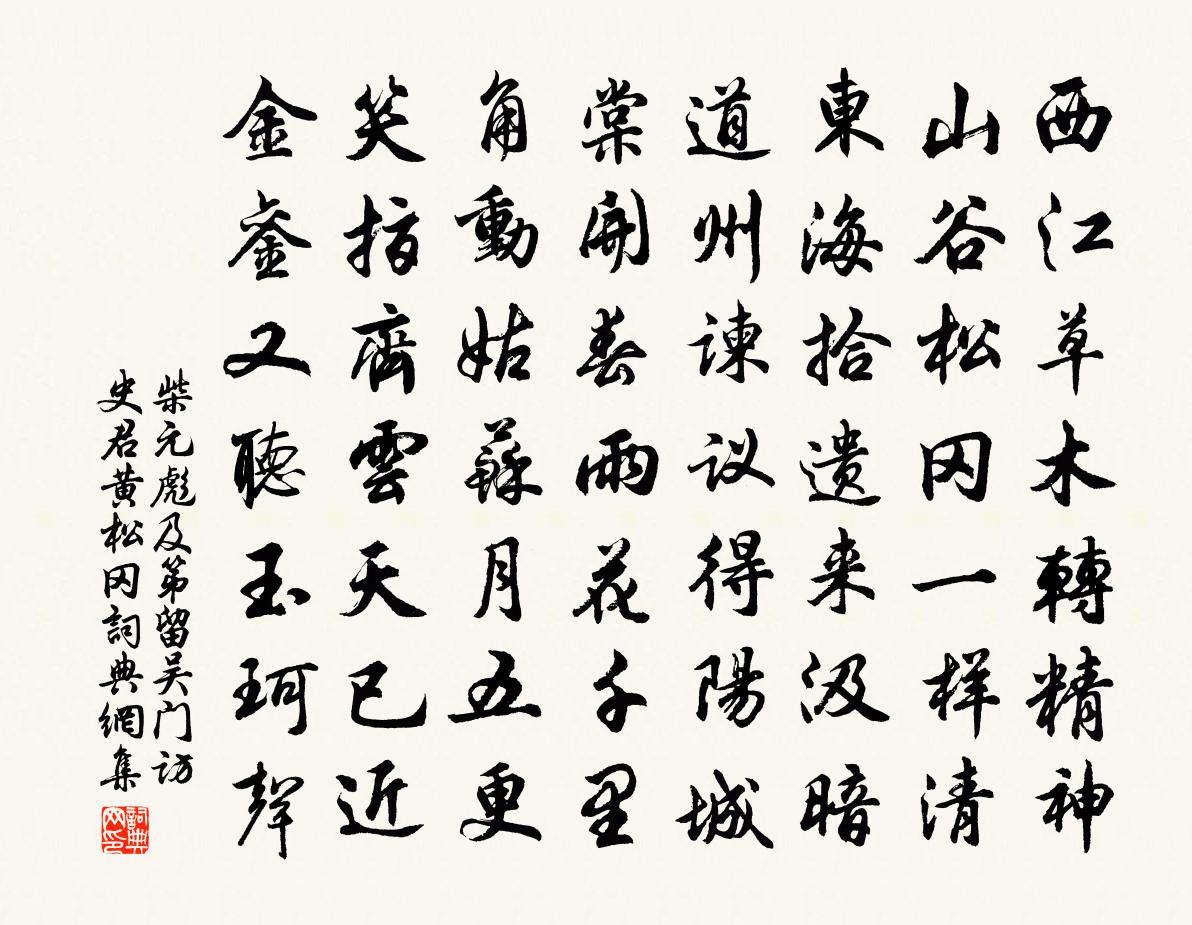 西江草木轉精神
山谷松冈一样清
東海拾遗来汲暗
道州諫议得陽城
棠開春雨花千里
角動姑蘇月五更
笑指齊雲天已近
金銮又聽玉珂聲
柴元彪及第留吴门访
史君黄松冈詞典網集
詞典
网印